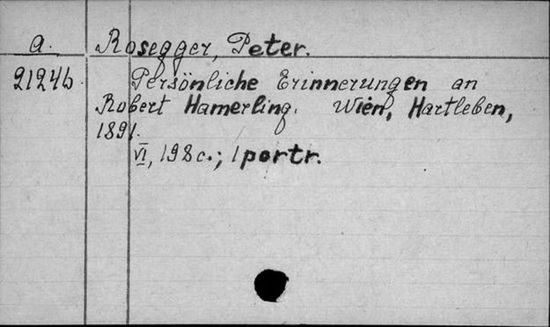 a. Rosegger, Peter.
21246. Persönliche Erinnerungen an
Robert Hamerling. Wien, Hartleben,
1891.
VI, 198 c.; 1 portr.